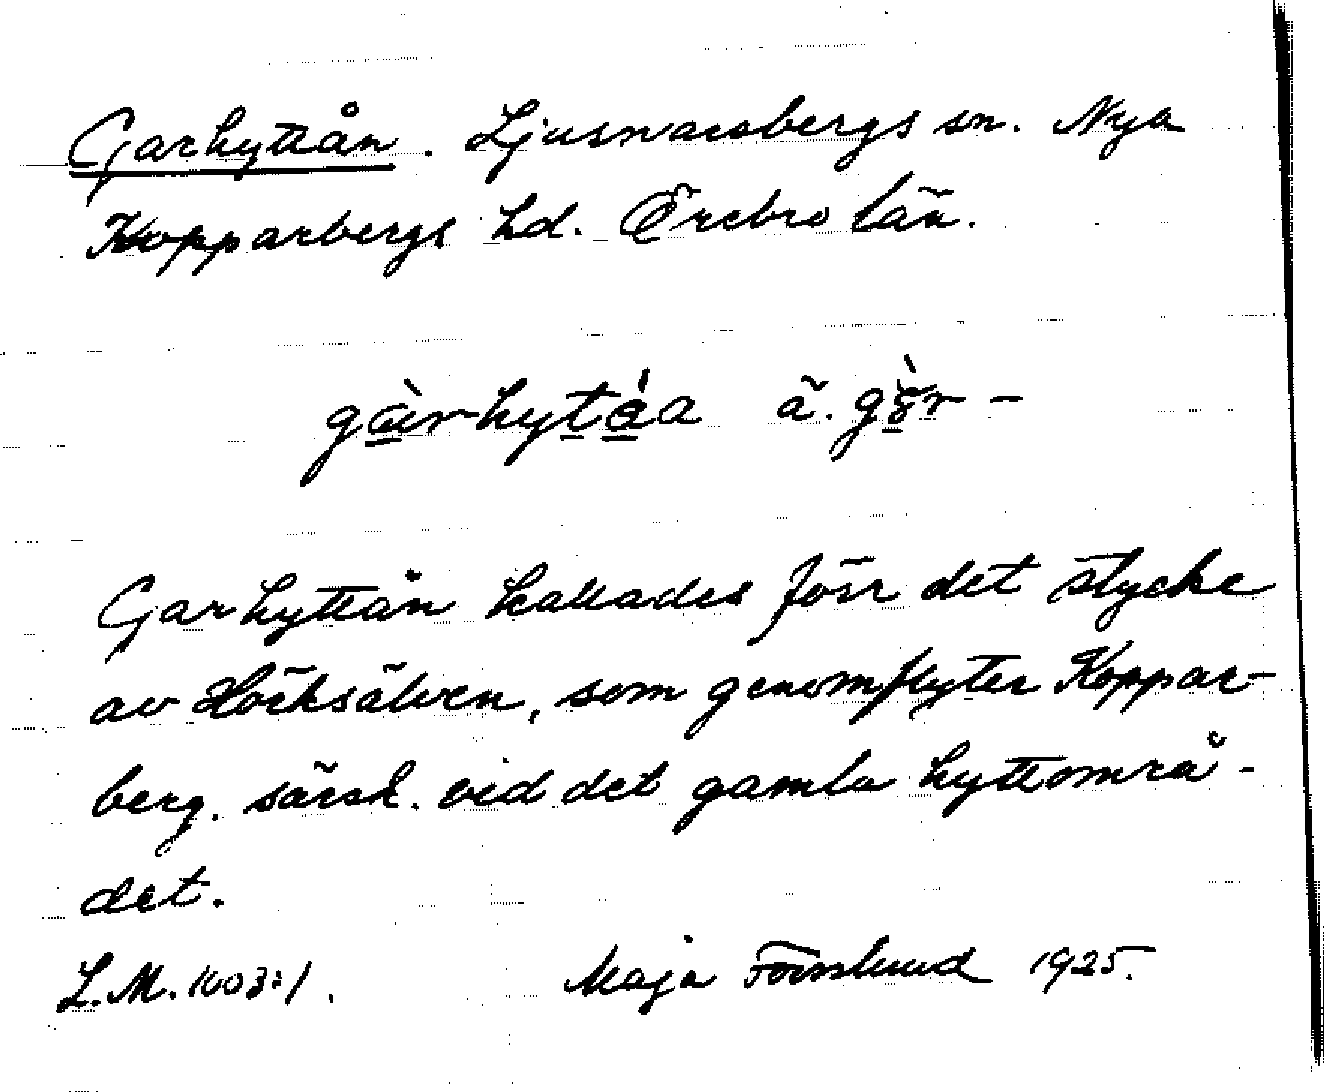 Garhyttån. Ljusnarsbergs sn. Nya
Kopparbergs hd. Örebro län.
Garhyttån kallades förr det stycke
av Hörksälven, som genomflyter Koppar-
berg. särsk. vid det gamla hyttområ-
det.
L.M. 1003:1. Maja Forsslund 1925.